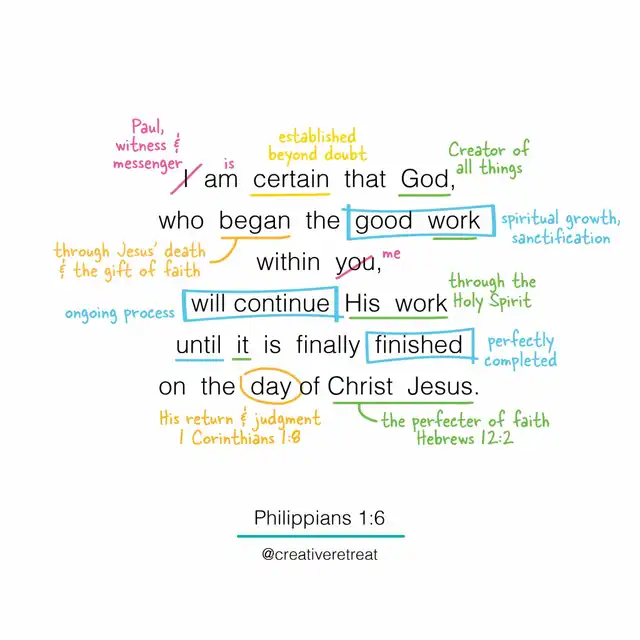 Paul,
witness &
messenger
is
established
beyond doubt
Creator of
all things
I am certain that God,
who began the good work
spiritual growth,
sanctification
through Jesus' death
& the gift of faith
within you,
me
ongoing process
will continue His work
through the
Holy Spirit
until it is finally finished
perfectly
completed
on the day of Christ Jesus.
His return & judgment
1 Corinthians 1:8
the perfecter of faith
Hebrews 12:2
Philippians 1:6
@creativeretreat